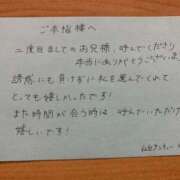 ご本指様へ
二度目ましてのお兄様、呼んでくださり
本当にありがとうございます
誘惑にも負けずに私を選んでくれて
とっても嬉しかったです!
また時間が合う時は呼んでいただけたら
嬉しいです!